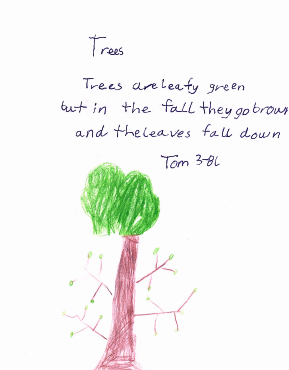 Trees
Trees are leafy green
but in the fall they go brown
and the leaves fall down
Tom 3-8L